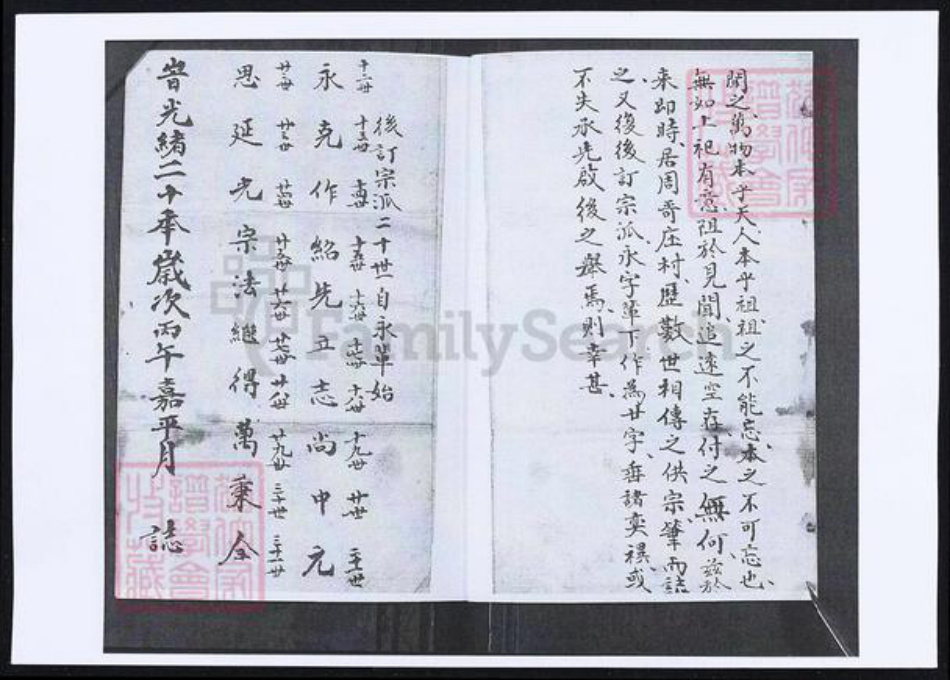 聞之萬物本乎天人本乎祖祖之不能忘本之不可忘也
無如上祀有意祖於見聞追遠空存付之無何兹於
來即時居周哥庄村歷數世相傳之供宗筆而誌
之又復後訂宗派永字輩下作為廿字垂諸奕禩或
不失承先啟後之舉焉則幸甚
後訂宗派二十世自永輩始
十二世 十三世 十四世 十五世 十六世 十七世 十八世 十九世 廿世 二十一世
永 克 作 紹 先 立 志 尚 中 元
廿二世 廿三世 廿四世 廿五世 廿六世 廿七世 廿八世 廿九世 三十世 三十一世
思 延 光 宗 法 繼 得 萬 秉 全
旹光緒二十年歲次丙午嘉平月 誌
FamilySearch